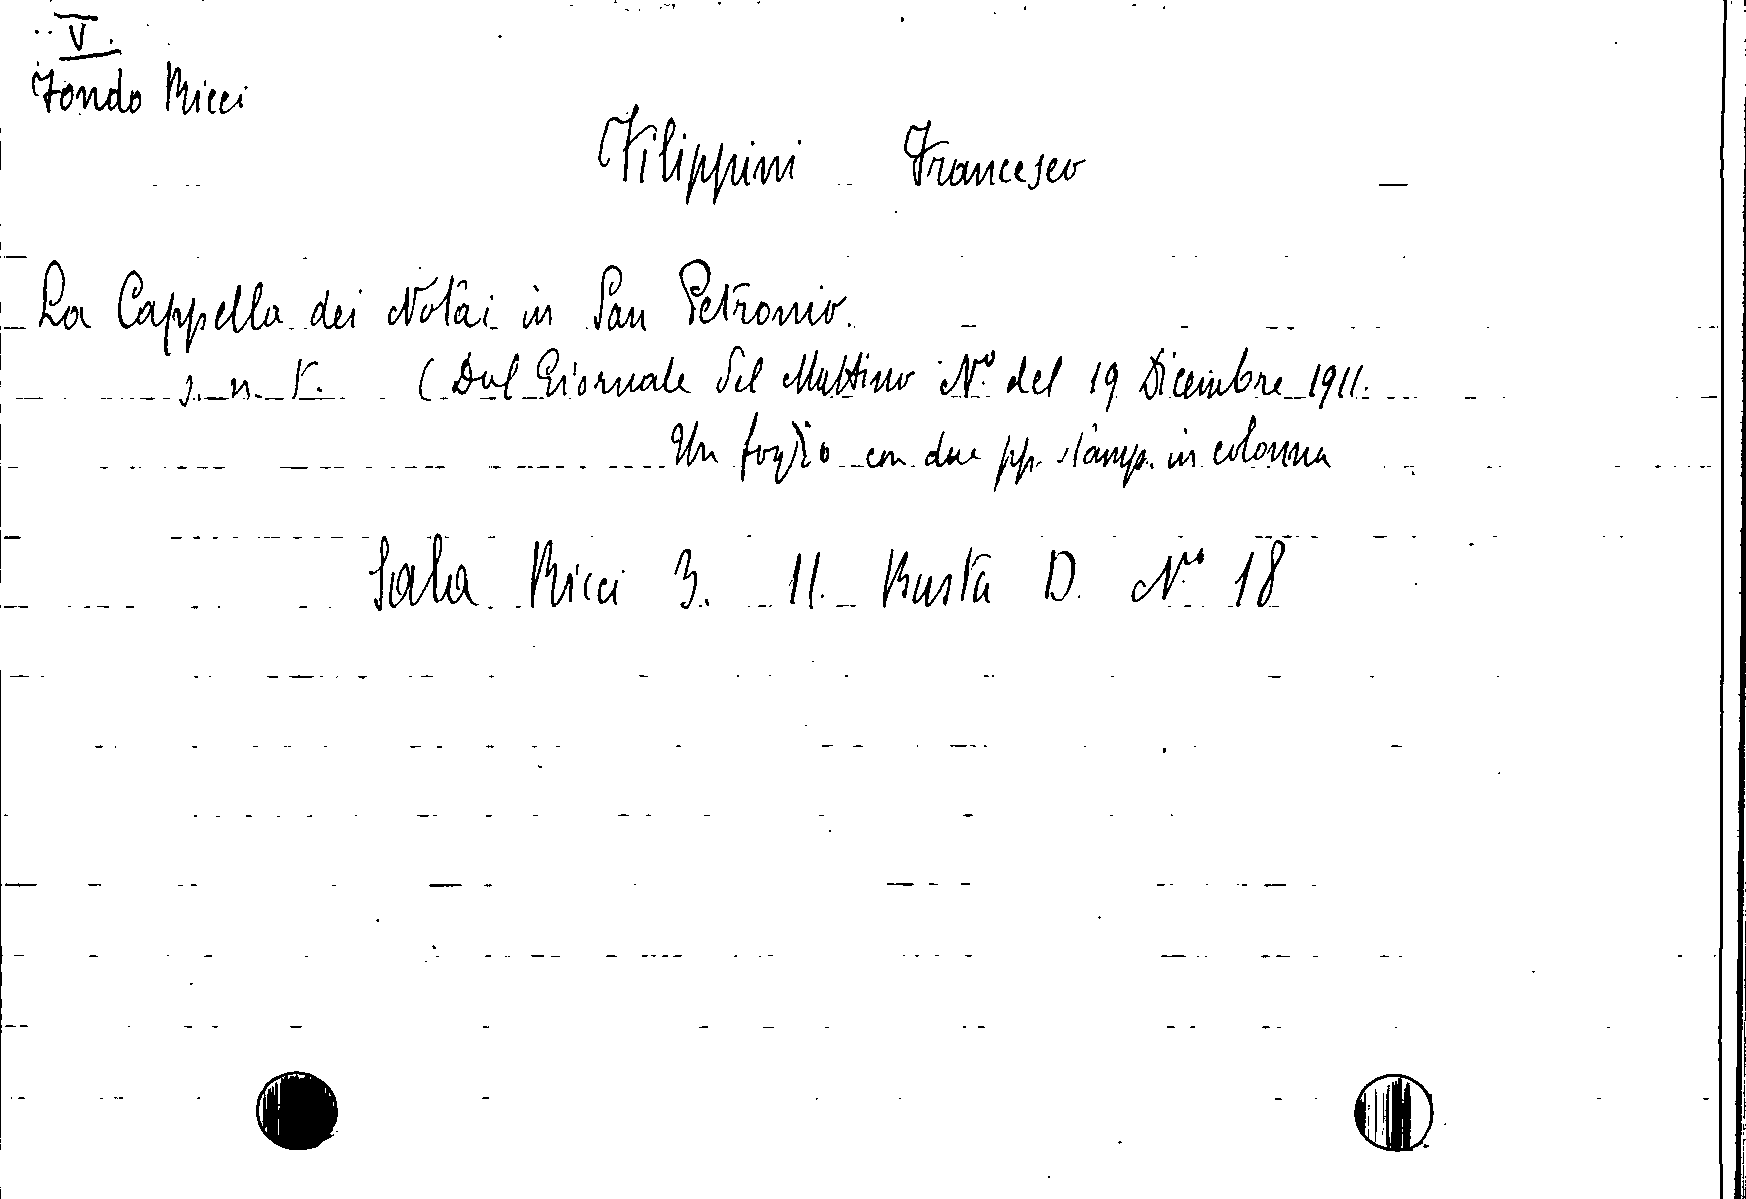 V.
Fondo Ricci
Filippini Francesco
La Cappella dei Notai in San Petronio.
s. n. t. (Dal Giornale del Mattino N.º del 19 Dicembre 1911.
Un foglio con due pp. stamp. in colonna
Sala Ricci 3. 11. Busta D. Nº 18